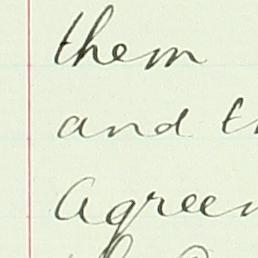 them
and t
agreen